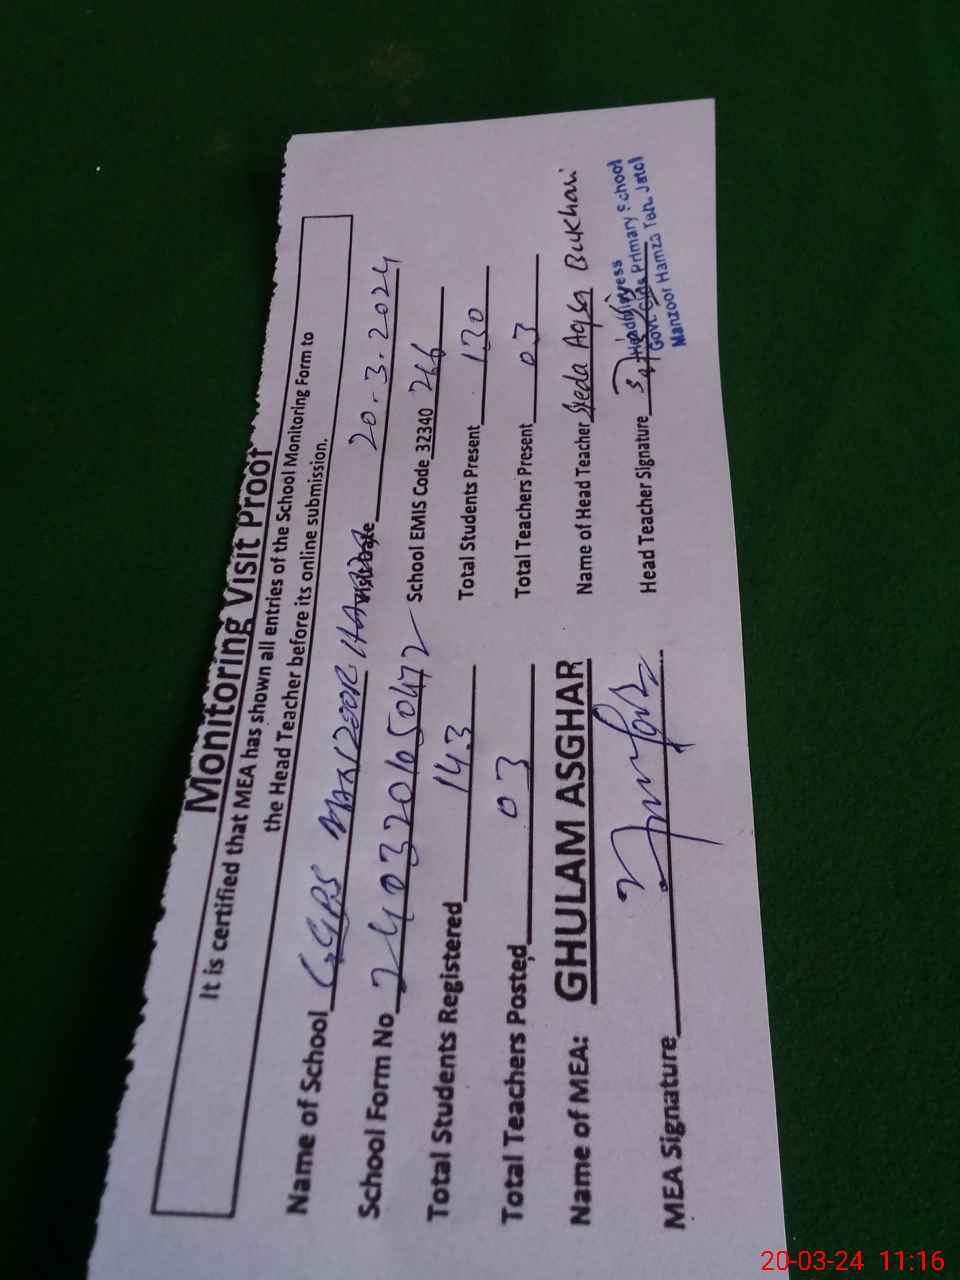 Monitoring Visit Proof
It is certified that MEA has shown all entries of the School Monitoring Form to
the Head Teacher before its online submission.
Name of School GGPS MANZOOR HAMZA Visit Date 20-3-2024
School Form No 2403201650472 School EMIS Code 32340 266
Total Students Registered 143 Total Students Present 130
Total Teachers Posted 03 Total Teachers Present 03
Name of MEA: GHULAM ASGHAR Name of Head Teacher Syeda Aqsa Bukhari
MEA Signature Head Teacher Signature
Headmistress
Govt. Girls Primary School
Manzoor Hamza Teh. Jatoi
20-03-24 11:16